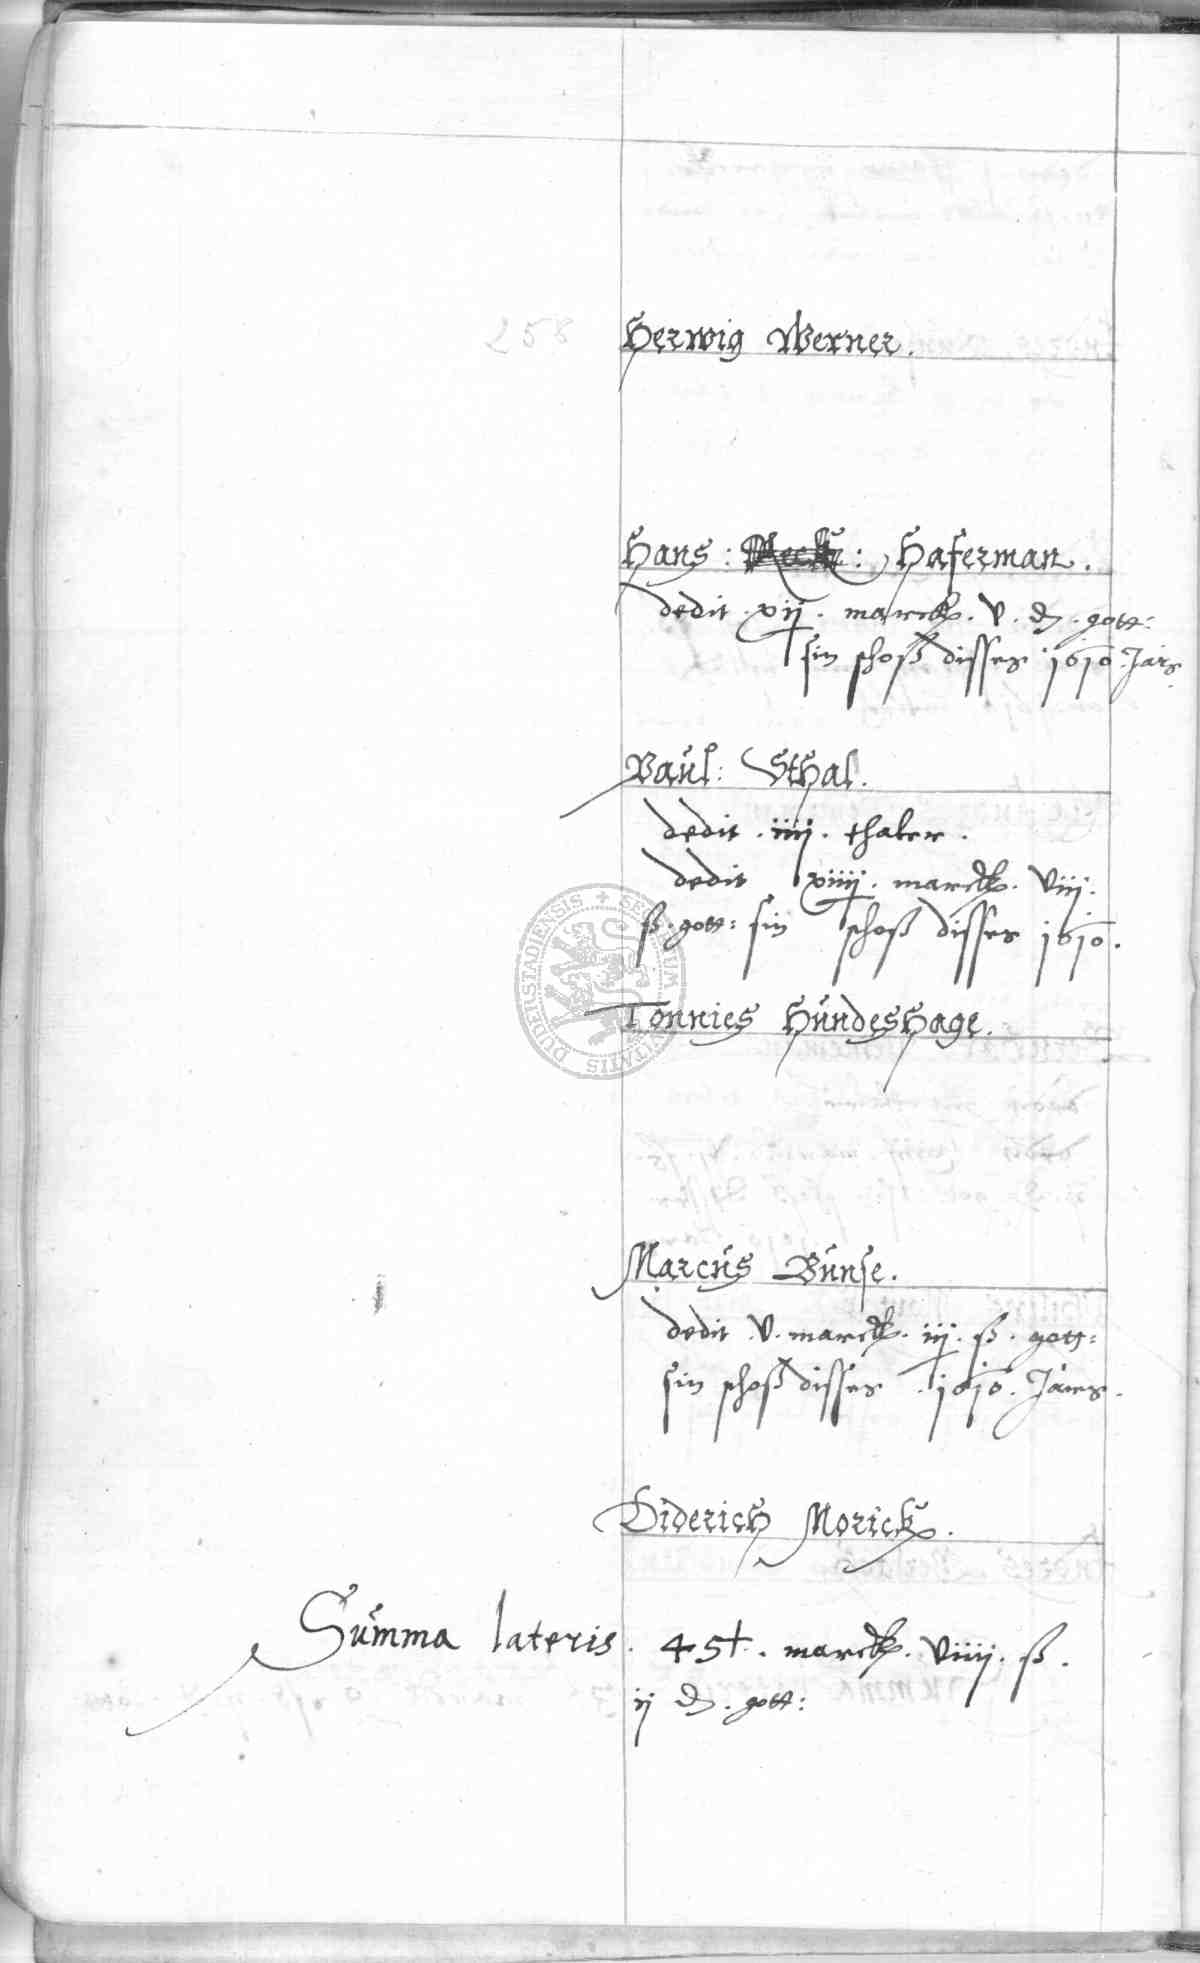 258
Herwig Werner.
Hans : : Haferman.
dedit . xij . marck . v . d . gott:
sin schoß disses 1610 Jars
Paul: Sthal.
dedit . iiij . thaler .
dedit xiiij . marck . viij .
ß . gott: sin schoß disses 1610 .
Tonnies Hundeshage.
DUDERSTADIENSIS + SECRETUM CIVITATIS
Marcus Bunse.
dedit . v . marck . iij . ß . gott:
sin schoß disses . 1610 . Jares .
Diderich Morick .
Summa lateris . 45 . marck . viiij . ß .
ij d . gott: